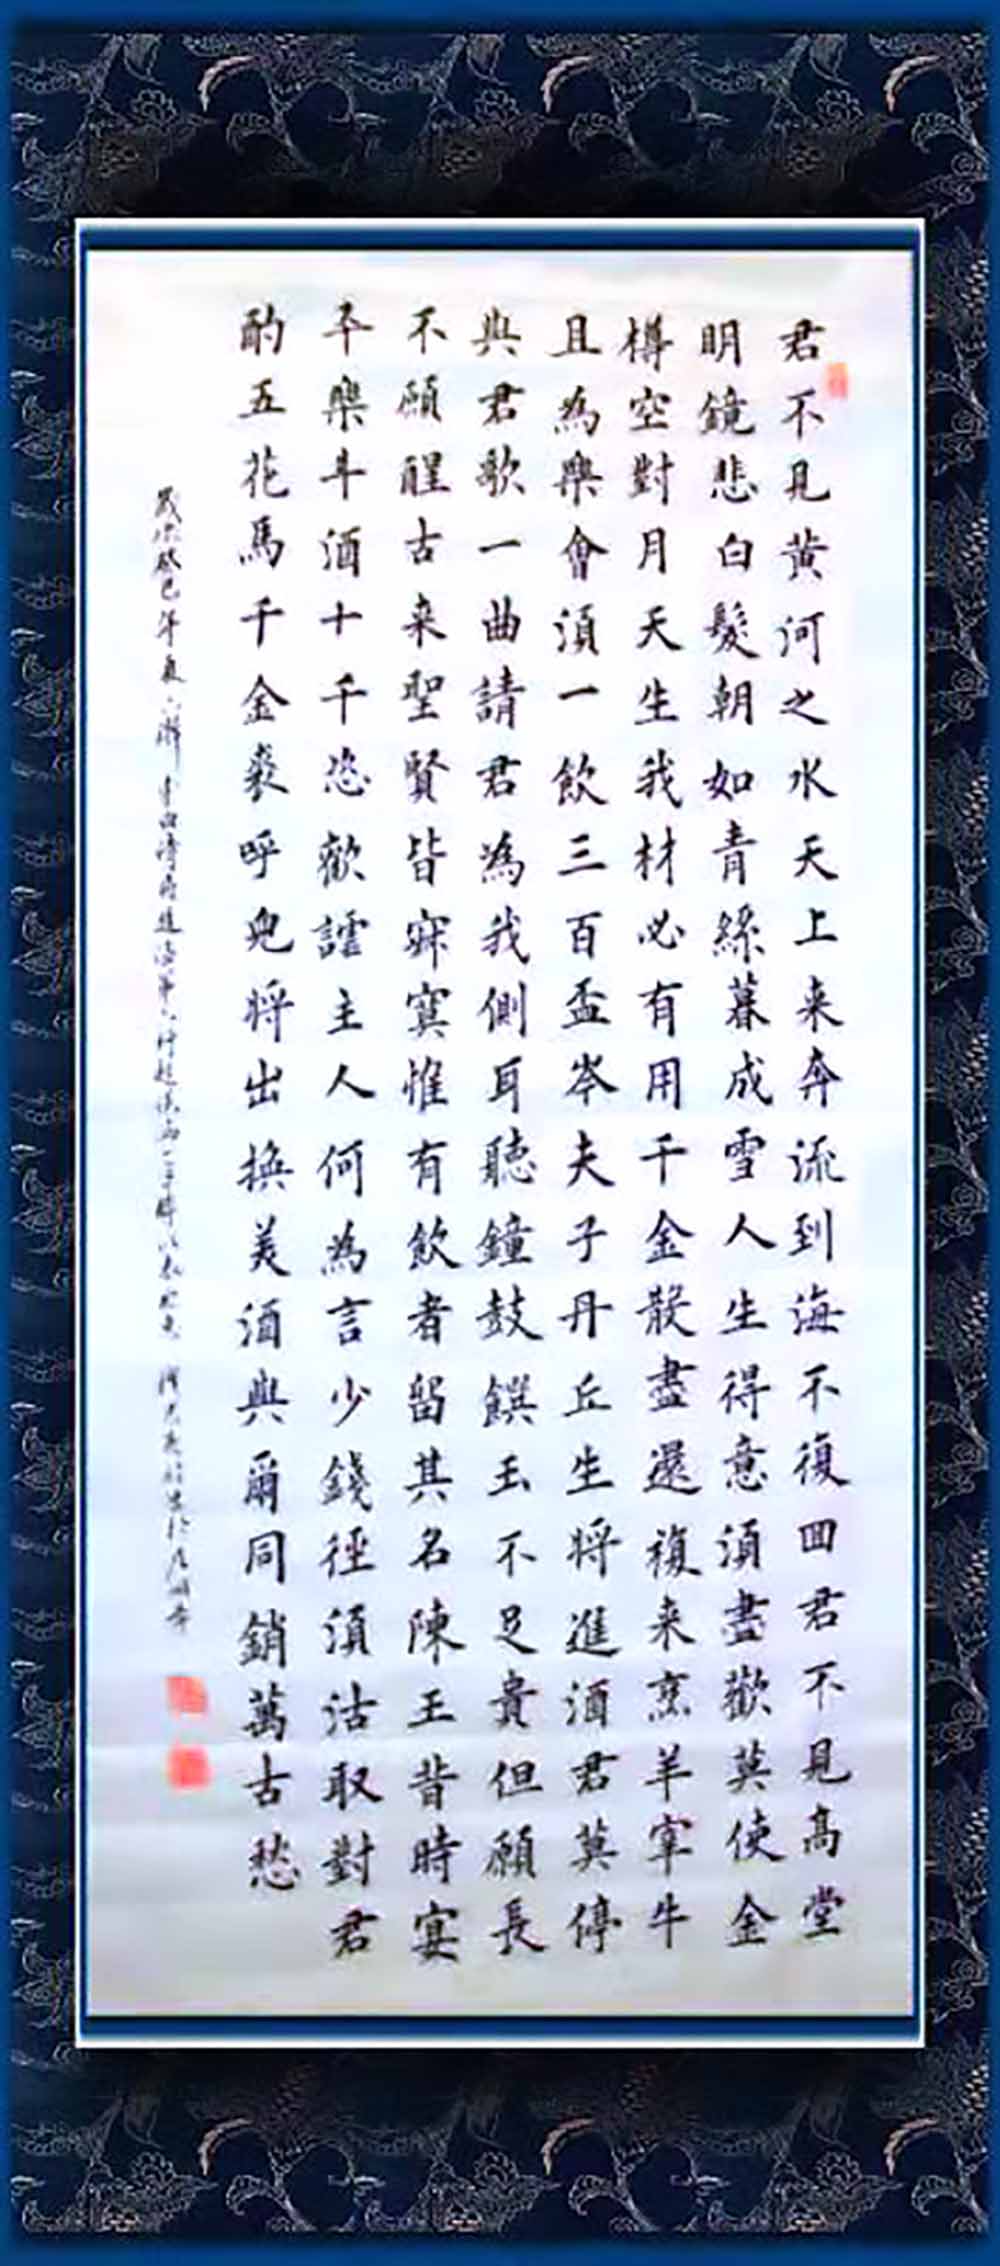 君不見黄河之水天上来奔流到海不復回君不見高堂
明鏡悲白髮朝如青絲暮成雪人生得意湏盡歡莫使金
樽空對月天生我材必有用千金散盡還複来烹羊宰牛
且為樂會湏一飲三百盃岑夫子丹丘生將進酒君莫停
與君歌一曲請君為我側耳聽鐘鼓饌玉不足貴但願長
不願醒古来聖賢皆寂寞惟有飲者留其名陳王昔時宴
平樂斗酒十千恣歡謔主人何為言少錢徑湏沽取對君
酌五花馬千金裘呼兒將出換美酒與爾同銷萬古愁
歲次癸巳年夏